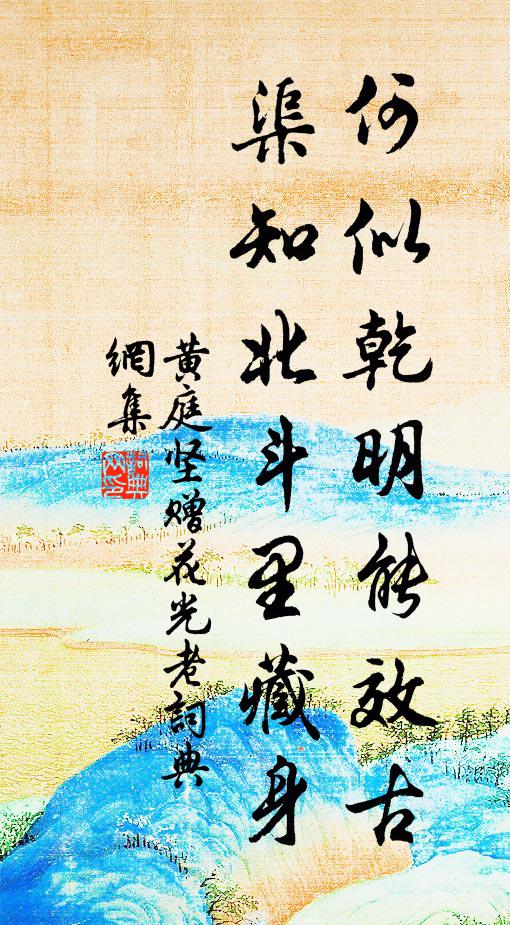 何似乾明能效古
渠知北斗里藏身
黄庭坚赠花光老詞典
網集
詞典